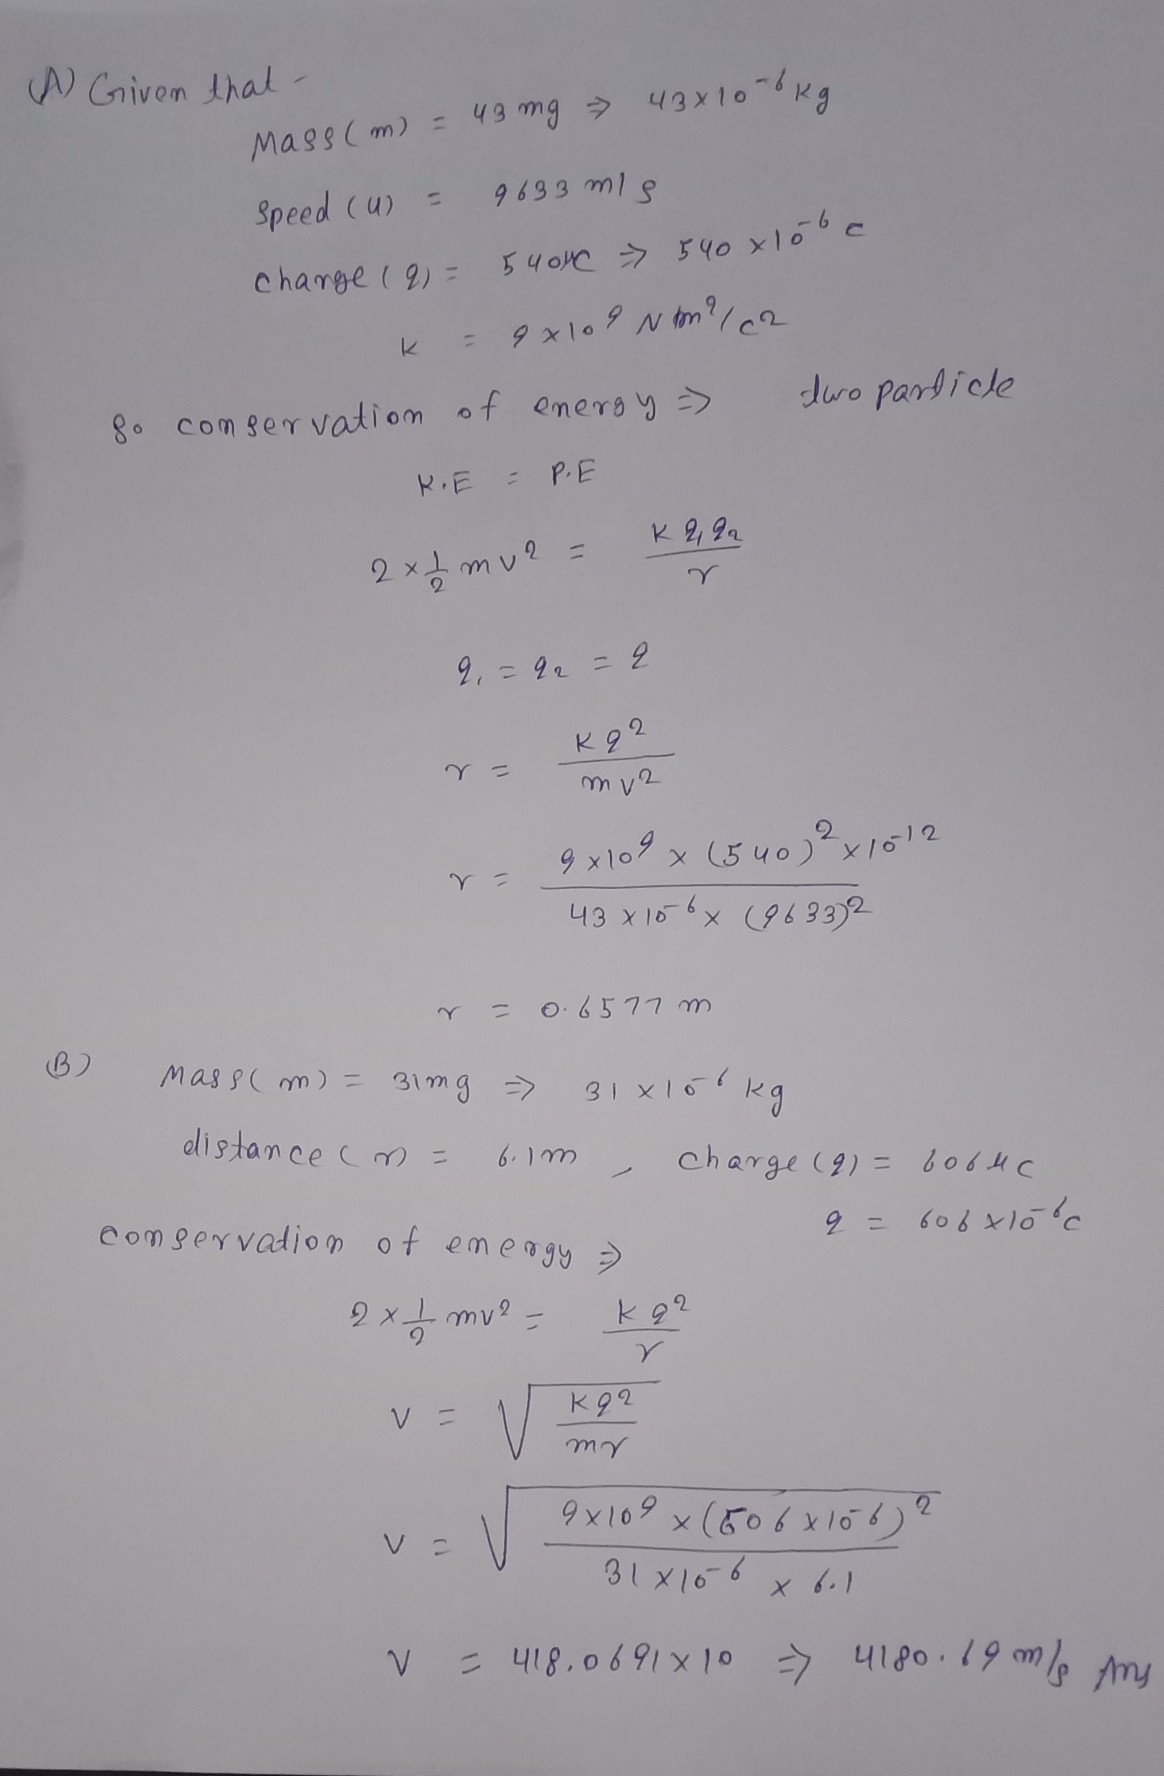 (A) Given that -
Mass (m) = 43 mg ⇒ 43×10⁻⁶ kg
Speed (u) = 9633 m/s
Charge (q) = 540 μC ⇒ 540 ×10⁻⁶ C
K = 9×10⁹ Nm²/C2
So conservation of energy ⇒ two particle
K.E = P.E
2 × 1/2 mv² = K q₁ q₂ / r
q₁ = q₂ = q
r = Kq² / mv²
r = 9×10⁹ × (540)² × 10⁻¹² / 43 × 10⁻⁶ × (9633)²
r = 0.6577 m
(B) Mass (m) = 31mg ⇒ 31 × 10⁻⁶ kg
distance (r) = 6.1m , Charge (q) = 606 μC
q = 606 ×10⁻⁶C
Conservation of energy ⇒
2 × 1/2 mv² = kq² / r
V = √(kq² / mr)
V = √(9×10⁹ × (606 × 10⁻⁶)² / 31 ×10⁻⁶ × 6.1)
V = 418.0691 × 10 ⇒ 4180.69 m/s Ans